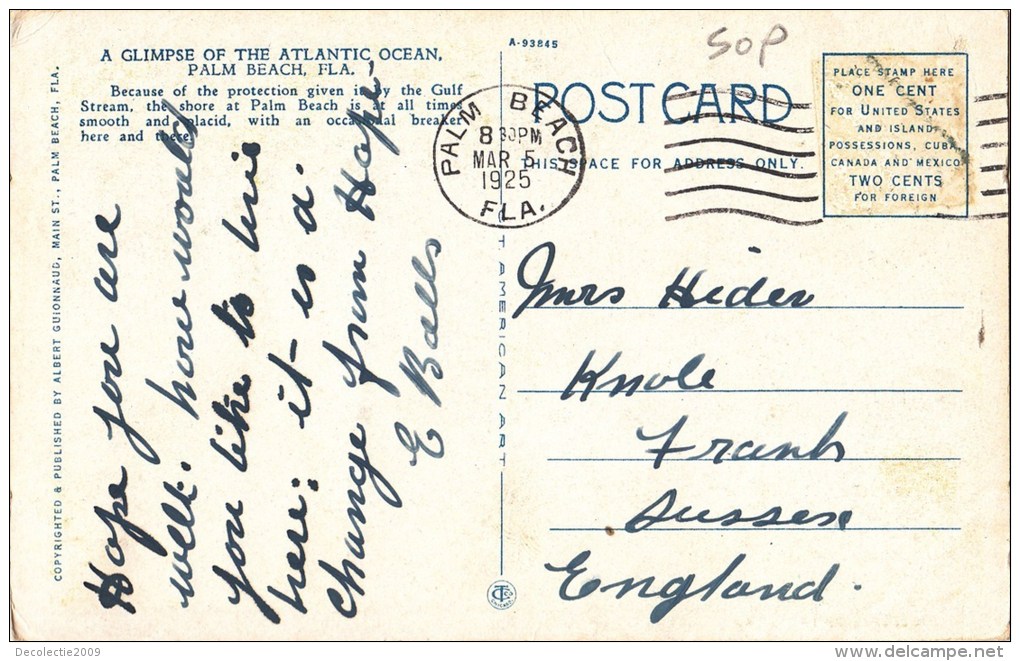 A GLIMPSE OF THE ATLANTIC OCEAN,
PALM BEACH, FLA.
Because of the protection given it by the Gulf
Stream, the shore at Palm Beach is at all times
smooth and placid, with an occasional breaker
here and there.
COPYRIGHTED & PUBLISHED BY ALBERT GUIONNAUD, MAIN ST., PALM BEACH, FLA.
Hope you are
well. how would
you like to live
here: it is a
change from Hope
E Balls
A-93845
50P
POST CARD
THIS SPACE FOR ADDRESS ONLY.
PALM BEACH
8 30PM
MAR 5
1925
FLA.
PLACE STAMP HERE
ONE CENT
FOR UNITED STATES
AND ISLAND
POSSESSIONS, CUBA,
CANADA AND MEXICO
TWO CENTS
FOR FOREIGN
T AMERICAN ART
Mrs Hider
Knole
Frant
Sussex
England.
Decolectie2009
delcampe.net